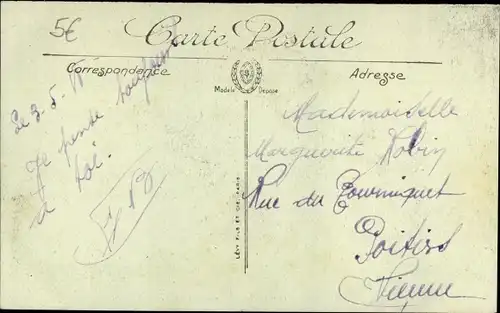 5€
Carte Postale
Correspondance
Adresse
Modèle Déposé
Le 3-5-
Je pense toujours
à toi.
Mademoiselle
Marguerite Robin
Rue du Tourniquet
Poitiers
Vienne
LÉVY FILS ET CIE, PARIS